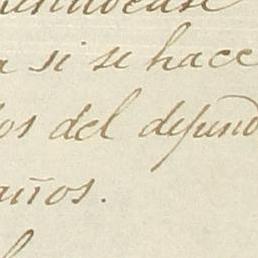 a si se hace
los del difund
años.